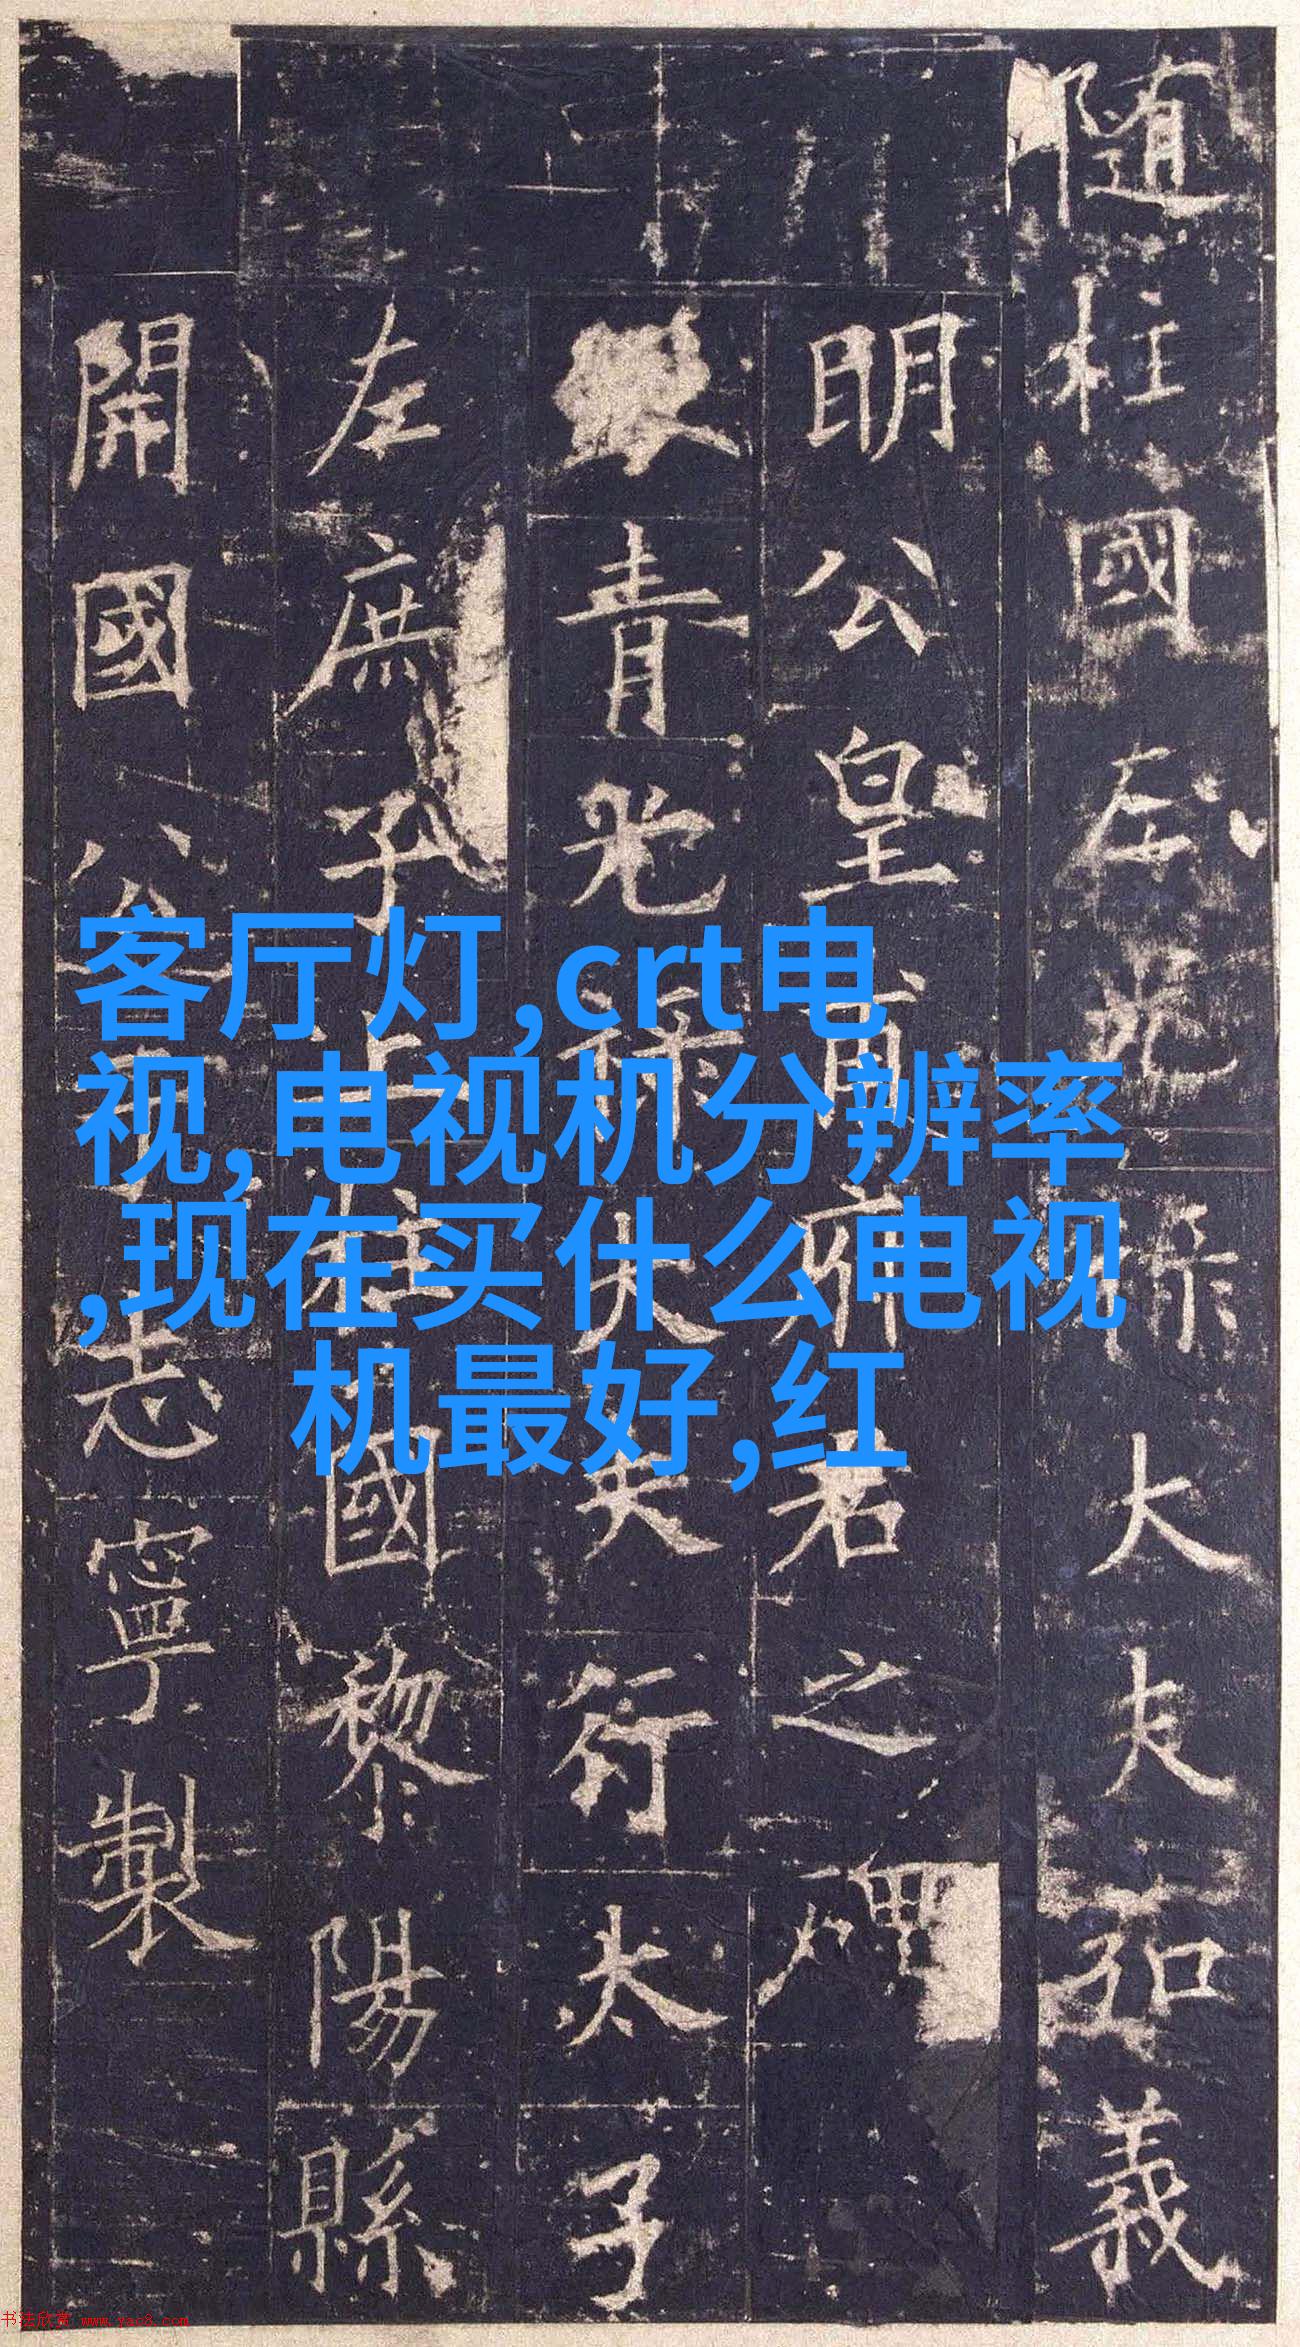 随柱國左光祿大夫弘義
明公皇甫府君之碑
青光祿大夫行太子
左庶子上柱國黎陽縣
開國公于志寧製
客厅灯,crt电
视,电视机分辨率
,现在买什么电视
机最好,红
书法欣赏 www.yac8.com